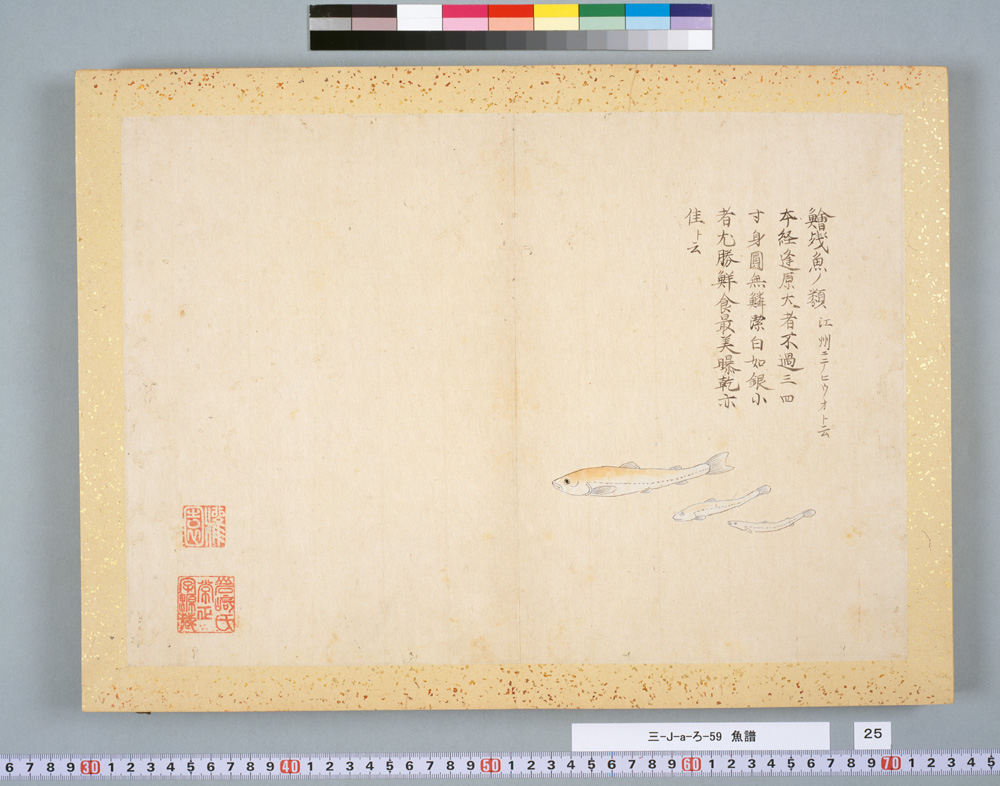 鱠残魚ノ類 江州ニテヒウオト云
本経逢原大者不過三四
寸身圓無鱗潔白如銀小
者尤勝鮮食最美曝乾亦
佳ト云
三-J-a-ろ-59 魚譜
25
6 7 8 9 30 1 2 3 4 5 6 7 8 9 40 1 2 3 4 5 6 7 8 9 50 1 2 3 4 5 6 7 8 9 60 1 2 3 4 5 6 7 8 9 70 1 2 3 4 5